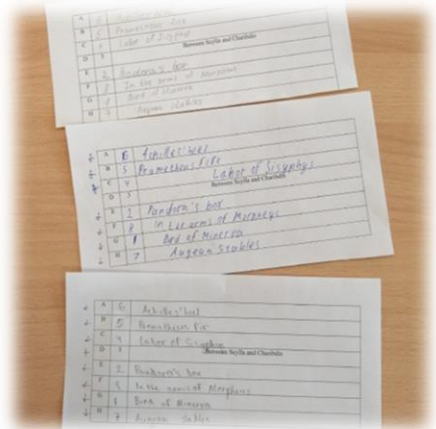 A 6 Achilles' heel
B 5 Prometheus fire
C 4 Labor of Sisyphus
D 3 Between Scylla and Charibdis
E 2
F 8 In the arms of Morpheus
G 1 Bird of Minerva
H 7 Augean stables
+ A 6 Achilles' heel
+ B 5 Prometheus Fire
+ C 4 Labor of Sisyphys
D 3 Between Scylla and Charibdis
+ E 2 Pandora's box
+ F 8 in the arms of Morpheys
+ G 1 Bird of Minerva
+ H 7 Augean Stables
+ A 6 Achilles' heel
+ B 5 Prometheus Fir
+ C 4 Labor of Sisyphus
+ D 3 Between Scylla and Charibdis
+ E 2 Pandora's box
+ F 8 In the arms of Morpheus
+ G 1 Bird of Minerva
+ H 7 Augean stables